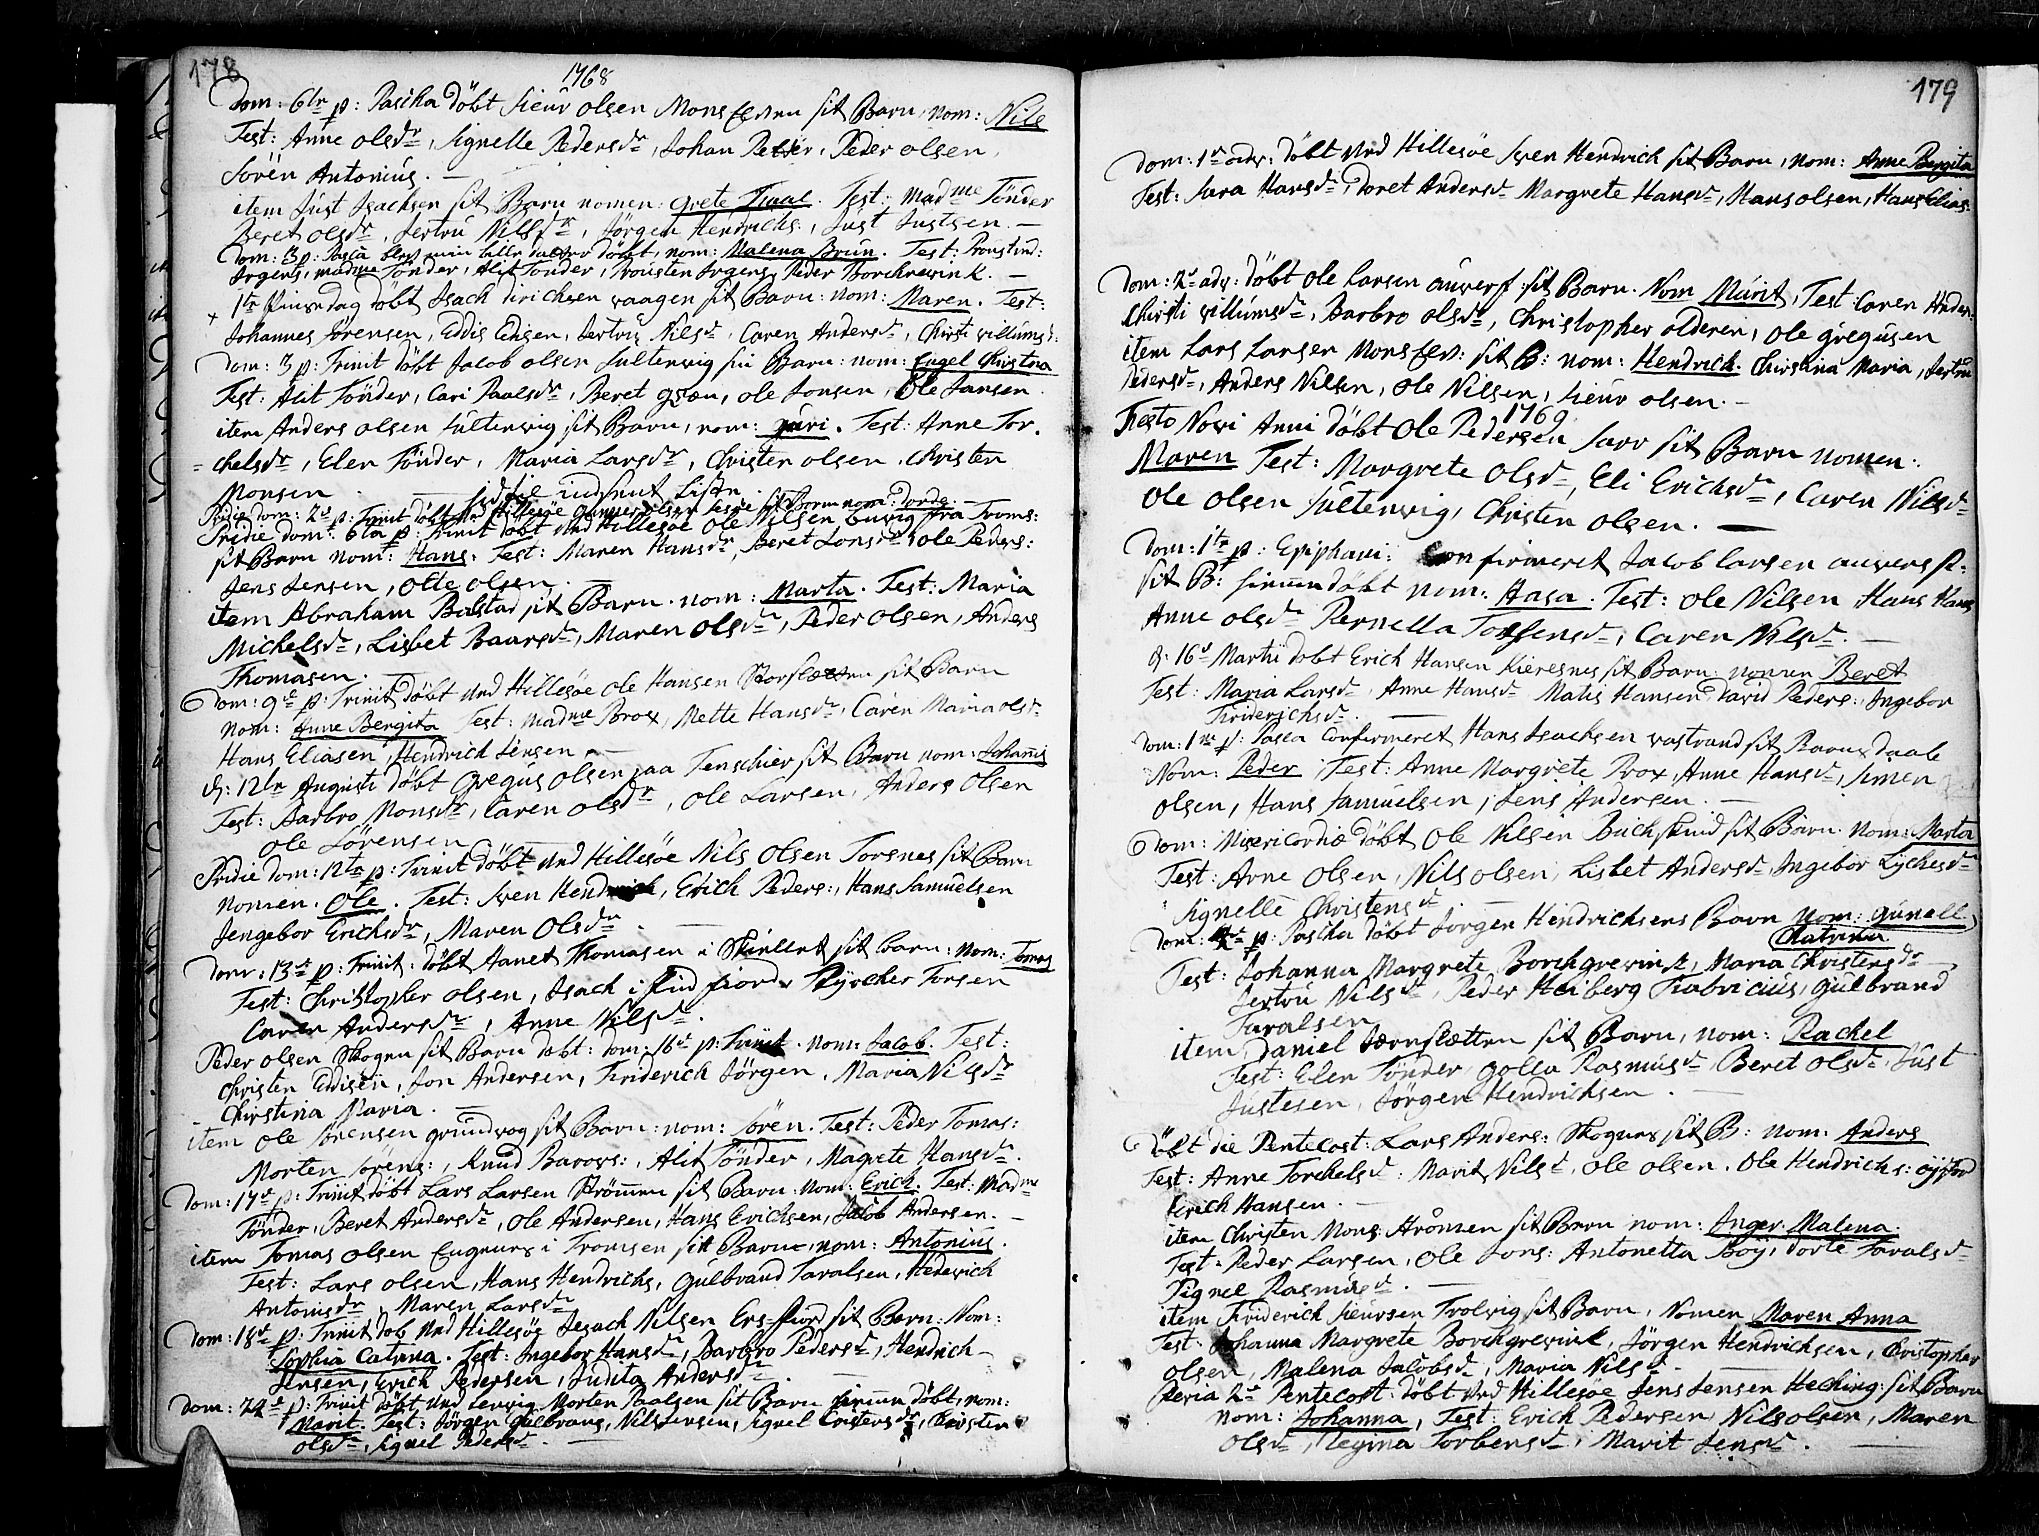 178
1768
Dom: 6te p: Pascha döbt Sieur olsen Mons sit Barn, nom: Nils
Test: Anne olsdr, Signelle Pedersdr, Johan Petter, Peder olsen,
Sören Antonius. —
item Just Isachsen sit Barn nomen: Grete Tuual. Test: Madme Tönder
Beret olsdr, Jertru Nilsdr, Jörgen Hendrichs:, Just Justsen. —
Dom: 3 p: Pasca blev min lille datter döbt, nom: Malena Brun. Test:
Irgens, Madme Tönder, Alit Tönder, Prousten Irgens, Peder Borchrewink. —
1te Pinsedag döbt Isach Dirichsen vaagen sit Barn: nom: Maren. Test:
Johannes Sörensen, Eddis Edisen, Jertru Nilsd, Caren Andersd, Chirsti villumsd:
Dom: 3 p: Trinit döbt Jacob olsen Sultenvig sin Barn: nom: Engel Christina
Test: Alit Tönder, Cari Paalsdr, Beret, ole Jonsen, Ole Jansen
item Anders olsen Sultenvig sit Barn, nom: Guri. Test: Anne Tor.
= chelsdr, Elen Tönder, Maria Larsdr, Christen olsen, Christen
Monsen
Pridie Dom: 2d p: Trinit döbt ved Hillesöe sit Barn nom: Dorde. —
Pridie dom: 6ta p: Trinit döbt ved Hillesöe Ole Nilsen fra Troms:
sit Barn nom: Hans. Test: Maren Hansdr, Beret Jonsdr, ole Peders:
Jens Jensen, Otte olsen. —
item Abraham Balstad sit Barn. nom: Marta. Test: Maria
Michelsdr, Lisbet Baarsdr, Maren Olsdr, Peder Olsen, Anders
Thomasen. —
Dom: 9de p: Trinit döbt ved Hillesöe Ole Hansen sit Barn
nom: Anne Bergita Test: Madme Brox, Mette Hansdr, Caren Maria olsdr
Hans Eliasen, Hendrich Jensen —
d: 12te Augusti döbt Gregus Olsen paa Tenschier sit Barn nom: Johannis
Test: Barbro Monsdr, Caren olsdr, Ole Larsen, Anders Olsen
Ole Sörensen —
Pridie Dom: 12te p: Trinit döbt ved Hillesöe Nils Olsen Torsnes sit Barn
nomen. Ole. Test: Sven Hendrich, Erich Peders:, Hans Samuelsen
Jengebor Erichsdr, Maren Olsdr. —
Dom: 13de p: Trinit: döbt Hanet Thomasen i sit barn: nom: Tomas
Test: Christopher olsen, Isach i, Torsen
Caren Andersdr, Anne Nilsdr.
Peder olsen Skogen sit Barn dobt: dom: 16de p: Trinit. nom: Jacob. Test:
Christen Eddisen, Jon Andersen, Friderich Jörgen, Maria Nilsdr
Chirstina Maria. —
item Ole Sörensen grundvog sit Barn: nom: Sören. Test: Peder Tomas:
Morten Sörens:, Knud, Alit Tönder, Magrete Hansdr.
Dom: 17de p: Trinit döbt Lars Larsen Strömmen sit Barn nom: Erich. Test: Madme
Tönder, Beret Andersdr, Ole Andersen, Hans Erichsen, Jacob Andersen. —
item Tomas Olsen i Tromsen sit Barn, nom: Antonius.
Test: Lars olsen, Hans Hendrichs, Gulbrand Taralsen, Hedewich
Antonisdr, Maren Larsdr
Dom: 18de p: Trinit dob ved Hillesöe Isach Nilsen Ers-fiord sit Barn: Nom:
Sophia Catrina. Test: Ingebor Hansdr, Barbro Pedersdr, Hendrich
Jensen, Erich Pedersen, Judita Andersdr. —
Dom: 22de p: Trinit döbt ved Lenvig Morten Paalsen sit Barn döbt, nom:
Marit. Test: Jörgen Gulbrans, Nils Jensen, Signel Cristensdr, Kirsten
olsdr, Signel Pedersdr. —
179
Dom: 1te adv: döbt ved Hillesöe Sven Hendrich sit Barn, nom: Anne Bergita
Test: Sara Hansdr, Doret Andersdr Margrete Hansdr, Hans olsen, Hans Elias:
Dom: 2d adv: döbt Ole Larsen sit Barn. Nom Marit, Test: Caren Anders:
Chirsti villumsdr, Barbro olsdr, Christopher olderen, Ole gregusen
item Lars Larsen Mons sit B: nom: Hendrich. Chirstina Maria, Jertru
Pedersdr, Anders Nilsen, Ole Nilsen, Sieur olsen. —
1769
Festo Novi Anni döbt Ole Pedersen sit Barn nomen:
Maren Test: Margrete olsdr, Eli Erichsdr, Caren Nilsdr
Ole Olsen Sultenvig, Christen Olsen. —
Dom: 1te p: Epiphani: Confirmeret Jacob Larsen
sit B: döbt nom: Hasa. Test: Ole Nilsen Hans Hans
Anne olsdr Pernella Dorfensdr, Caren Nilsdr. —
d: 16d Martii dobt Erich Hansen Kieresnes sit Barn nomen Beret
Test: Maria Larsdr Anne Hansdr Matis Hansen David Peders:, Ingebor
Friderichsdr. —
Dom: 1me p: Pasca Confirmeret Hans Isachsen vastrand sit Barns daab
Nom: Peder. Test: Anne Margrete Brox, Anne Hansdr, Simen
Olsen, Hans Samuelsen, Jens Andersen. —
Dom: Misericordiæ döbt Ole Nilsen Buchskind sit Barn. nom: Marta
Test: Arne Olsen, Nils olsen, Lisbet Andersdr, Ingebor Lychesdr
Signelle Christensdr —
Dom: 4de p: Pascha döbt Jörgen Hendrichsens Barn nom: Gunell
Chatrina
Test: Johanna Margrete Borchgrevink, Maria Christensdr
Jertru Nilsdr, Peder Heiberg Fabricius, Gulbrand
Taralsen
item Daniel sit Barn, nom: Rachel
Test: Elen Tönder, Golla Rasmusdr, Beret Olsdr, Just
Justesen, Jörgen Hendrichsen. —
Döbt die Pentecost: Lars Anders: Skognes sit B: nom: Anders
Test: Anne Torchelsdr: Marit Nilsdr, Ole Olsen. Ole Hendrichs:
Erich Hansen. —
item Christen Mons: sit Barn nom: Inger Malena.
Test: Peder Larsen, Ole Jons: Antonetta Boy, Dorte Taralsdr
Signel Rasmusdr. —
item Friderich Sieursen Trolvig sit Barn, Nomen Maren Anna
Test: Johanna Margrete Borchgrevink, Jörgen Hendrichsen, Christopher
Olsen, Malena Jacobsdr, Maria Nilsdr. —
Feria 2d Pentecost: döbt ved Hillesöe Jens Jensen Heching sit Barn
nom: Johanna, Test: Erich Pedersen, Nils olsen, Maren
Olsdr, Regina Torbensdr, Marit Jensdr. —